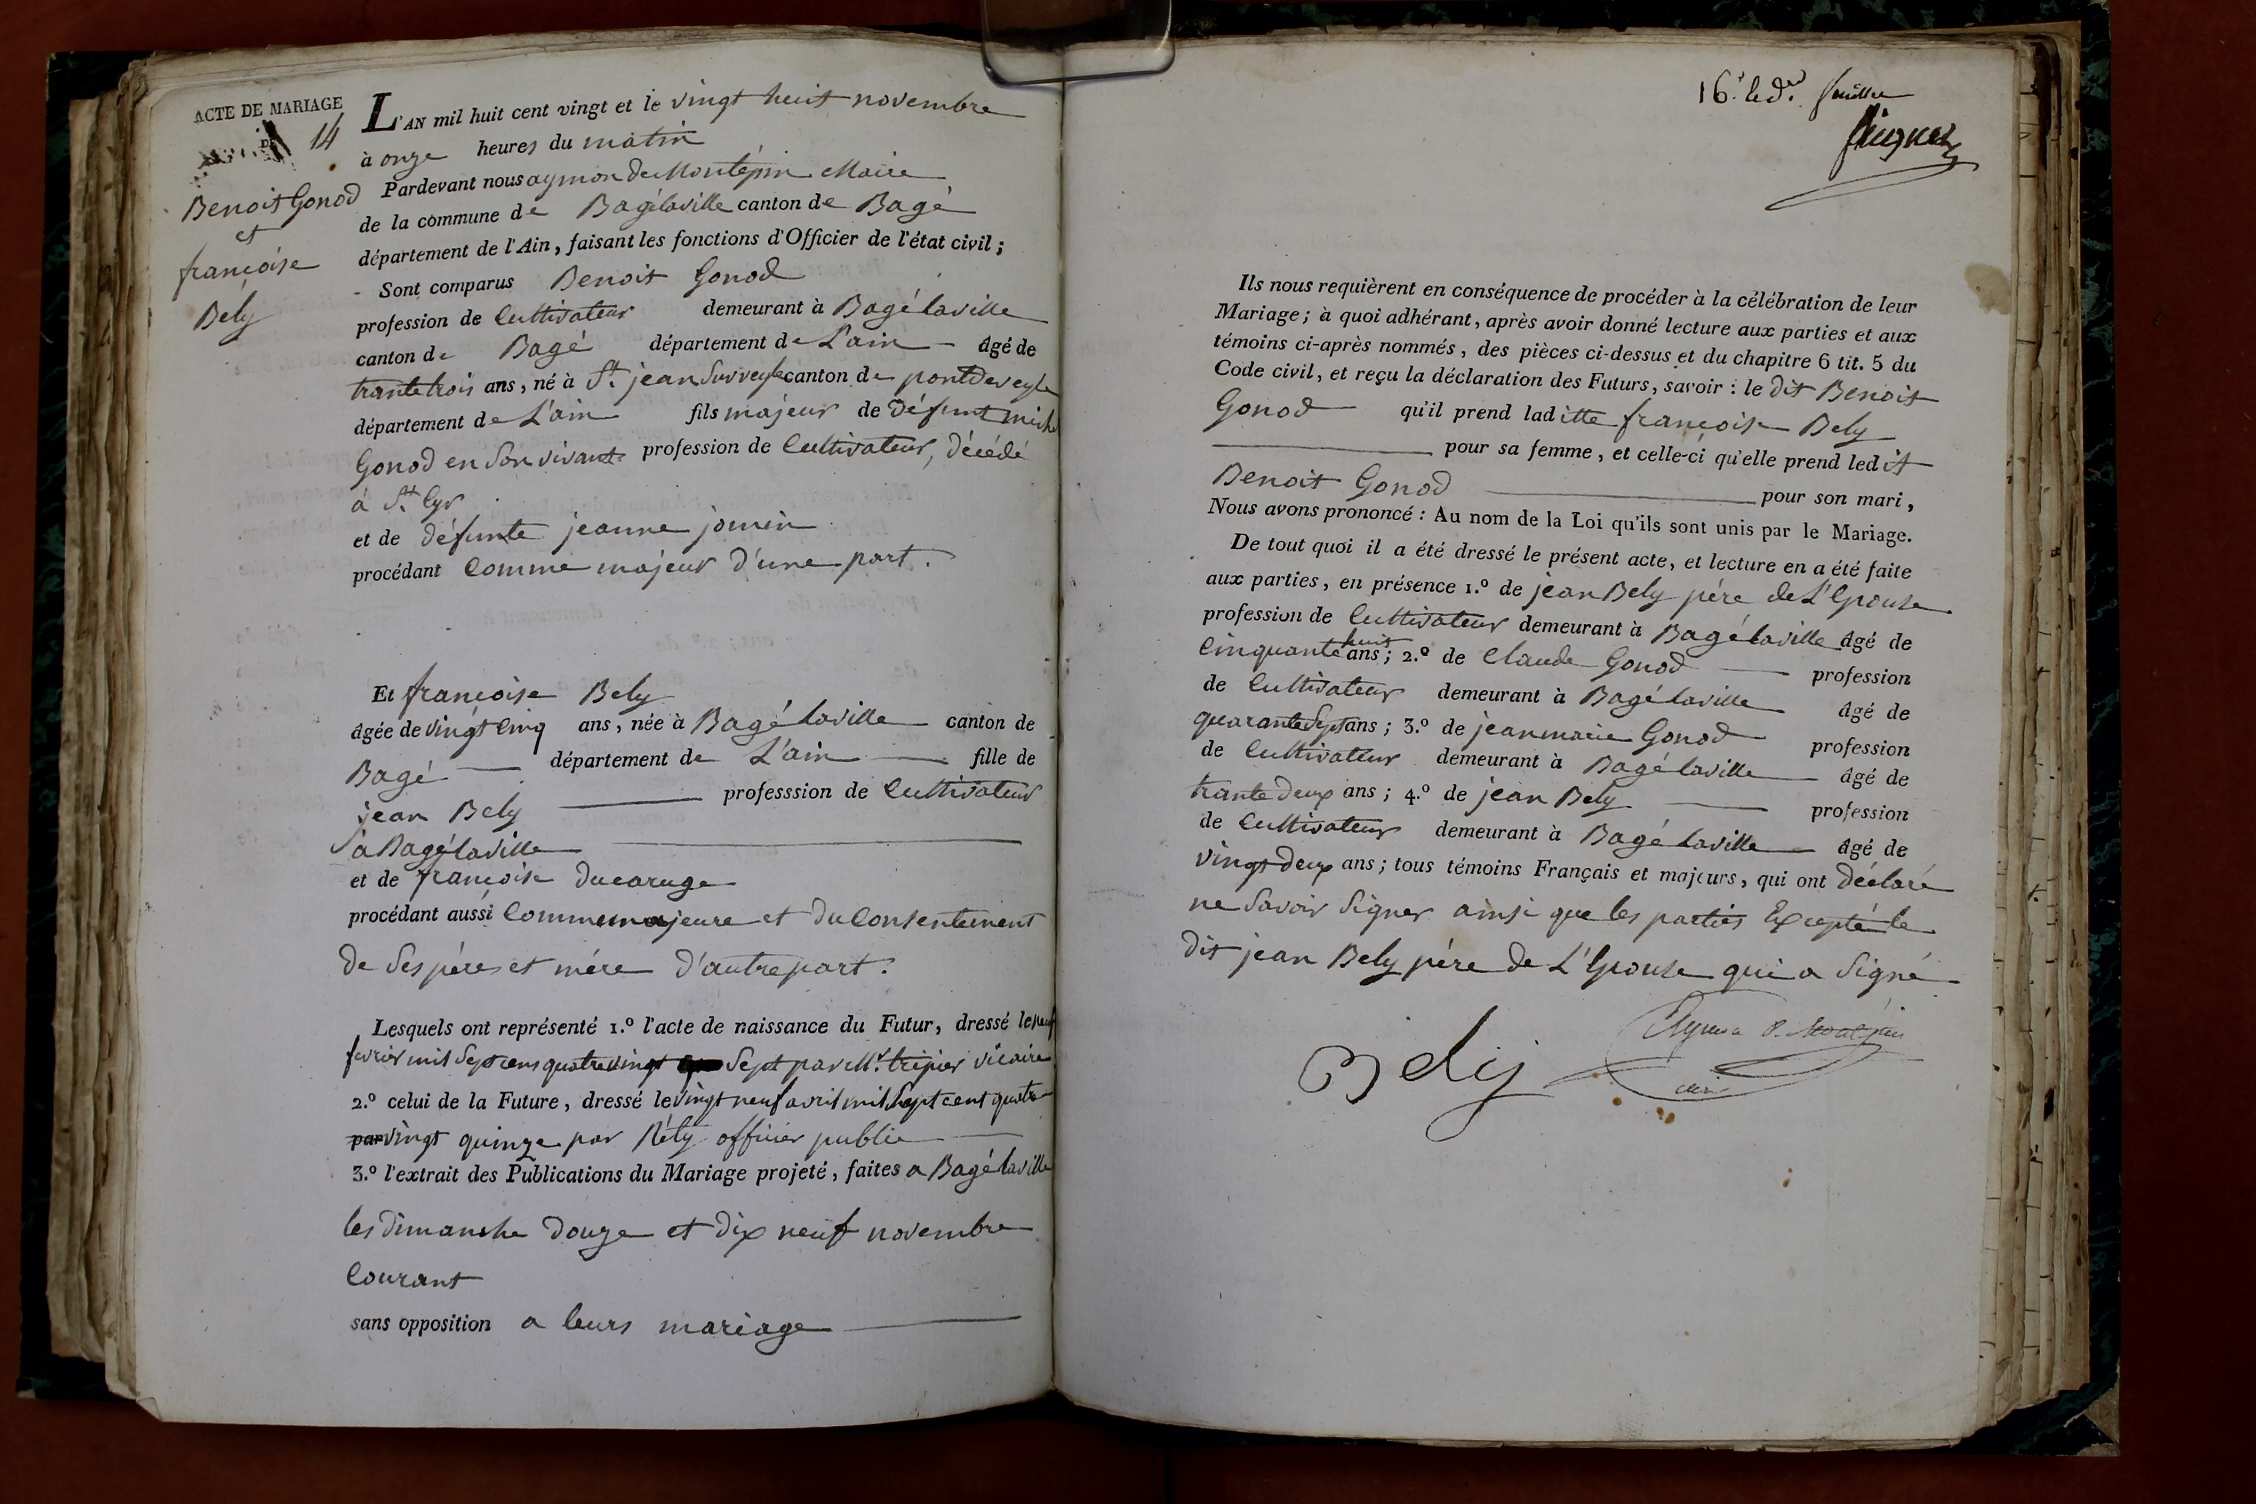 ACTE DE MARIAGE
DE 14
Benoit Gonod
et
françoise
Bely
L'AN mil huit cent vingt et le vingt huit novembre
à onze heures du matin
Pardevant nous aymon de Montépin Maire
de la commune de Bagélaville canton de Bagé
département de l'Ain, faisant les fonctions d'Officier de l'état civil;
Sont comparus Benoit Gonod
profession de Cultivateur demeurant à Bagélaville
canton de Bagé département de L'ain âgé de
trante trois ans, né à St. jean Surveyle canton de pontdeveyle
département de L'ain fils majeur de défunt
Gonod en Son vivant profession de Cultivateur, décédé
à St. Cyr
et de défunte jeanne jomin
procédant Comme majeur d'une part.
Et françoise Bely
âgée de vingt Cinq ans, née à Bagélaville canton de
Bagé département de L'ain fille de
jean Bely professsion de Cultivateur
à Bagélaville
et de françoise ducaruge
procédant aussi Comme majeure et du Consentement
de Ses pére et mére d'autre part.
Lesquels ont représenté 1.º l'acte de naissance du Futur, dressé le neuf
fevrier mil Sept cens quatrevingt Sept par Mr. tripier vicaire
2.º celui de la Future, dressé le vingt neuf avril mil Sept cent quatre
par vingt quinze par Réty officier public
3.º l'extrait des Publications du Mariage projeté, faites a Bagélaville
les dimanche douze et dix neuf novembre
Courant
sans opposition a leurs mariage
16.e & d.er feuillet
Ils nous requièrent en conséquence de procéder à la célébration de leur
Mariage; à quoi adhérant, après avoir donné lecture aux parties et aux
témoins ci-après nommés, des pièces ci-dessus et du chapitre 6 tit. 5 du
Code civil, et reçu la déclaration des Futurs, savoir: le dit Benoit
Gonod qu'il prend laditte françoise Bely
pour sa femme, et celle-ci qu'elle prend ledit
Benoit Gonod pour son mari,
Nous avons prononcé: Au nom de la Loi qu'ils sont unis par le Mariage.
De tout quoi il a été dressé le présent acte, et lecture en a été faite
aux parties, en présence 1.º de jean Bely pére de L'Epouse
profession de Cultivateur demeurant à Bagélaville âgé de
Cinquante huit ans; 2.º de Claude Gonod profession
de Cultivateur demeurant à Bagélaville âgé de
quarante Sept ans; 3.º de jean marie Gonod profession
de Cultivateur demeurant à Bagélaville âgé de
trante deux ans; 4.º de jean Bely profession
de Cultivateur demeurant à Bagélaville âgé de
vingt deux ans; tous témoins Français et majeurs, qui ont déclaré
ne Savoir Signer ainsi que les parties Excepté le
dit jean Bely pére de L'Epouse qui a Signé
Bely